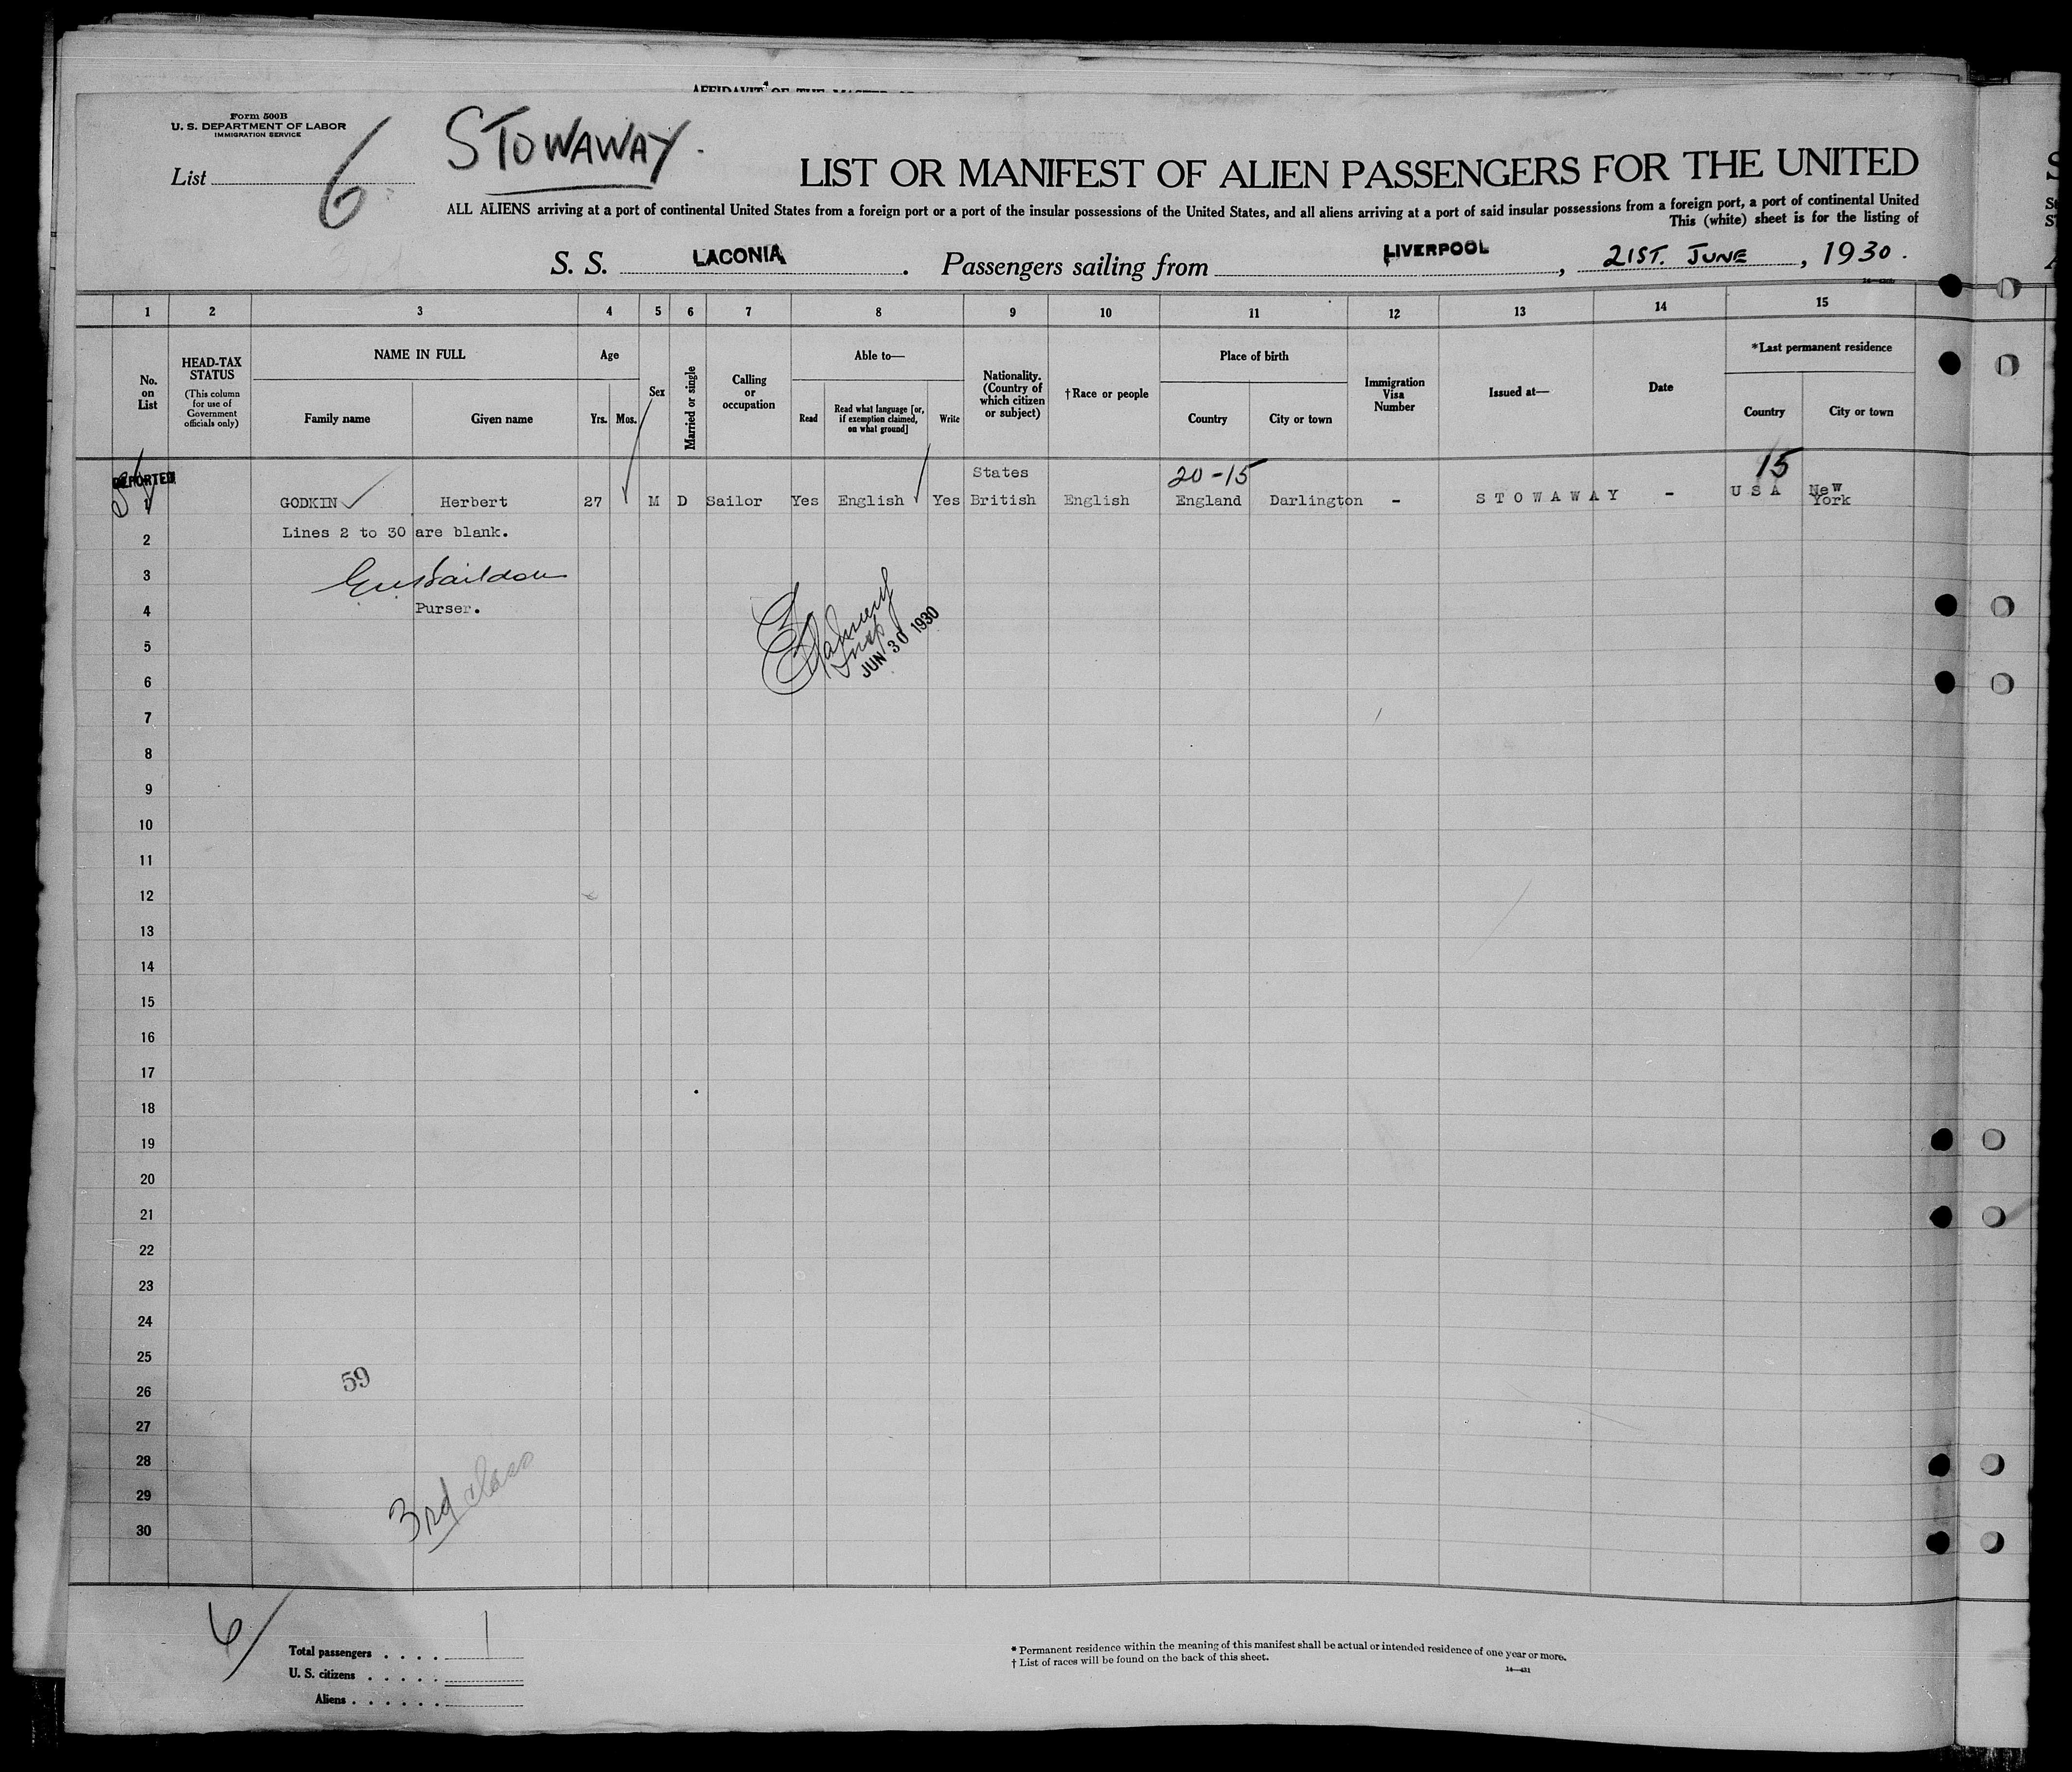 AFFIDAVIT OF THE MASTER
Form 500B
U. S. DEPARTMENT OF LABOR
IMMIGRATION SERVICE
List 6
STOWAWAY.
LIST OR MANIFEST OF ALIEN PASSENGERS FOR THE UNITED
ALL ALIENS arriving at a port of continental United States from a foreign port or a port of the insular possessions of the United States, and all aliens arriving at a port of said insular possessions from a foreign port, a port of continental United
This (white) sheet is for the listing of
S. S. LACONIA. Passengers sailing from LIVERPOOL, 21ST. JUNE, 1930.
1 2 3 4 5 6 7 8 9 10 11 12 13 14 15
No. on List
HEAD-TAX STATUS
(This column for use of Government officials only)
NAME IN FULL
Family name
Given name
Age
Yrs. Mos.
Sex
Married or single
Calling or occupation
Able to—
Read
Read what language [or, if exemption claimed, on what ground]
Write
Nationality. (Country of which citizen or subject)
†Race or people
Place of birth
Country
City or town
Immigration Visa Number
Issued at—
Date
*Last permanent residence
Country
City or town
DEPORTED
States
20-15
15
1 GODKIN Herbert 27 M D Sailor Yes English Yes British English England Darlington - STOWAWAY - USA New York
2 Lines 2 to 30 are blank.
3
4 Purser.
5
JUN 30 1930
6
7
8
9
10
11
12
13
14
15
16
17
18
19
20
21
22
23
24
25
59
26
27
28
3rd class
29
30
6
Total passengers . . . . 1
U. S. citizens . . . . .
Aliens . . . . . .
* Permanent residence within the meaning of this manifest shall be actual or intended residence of one year or more.
† List of races will be found on the back of this sheet.